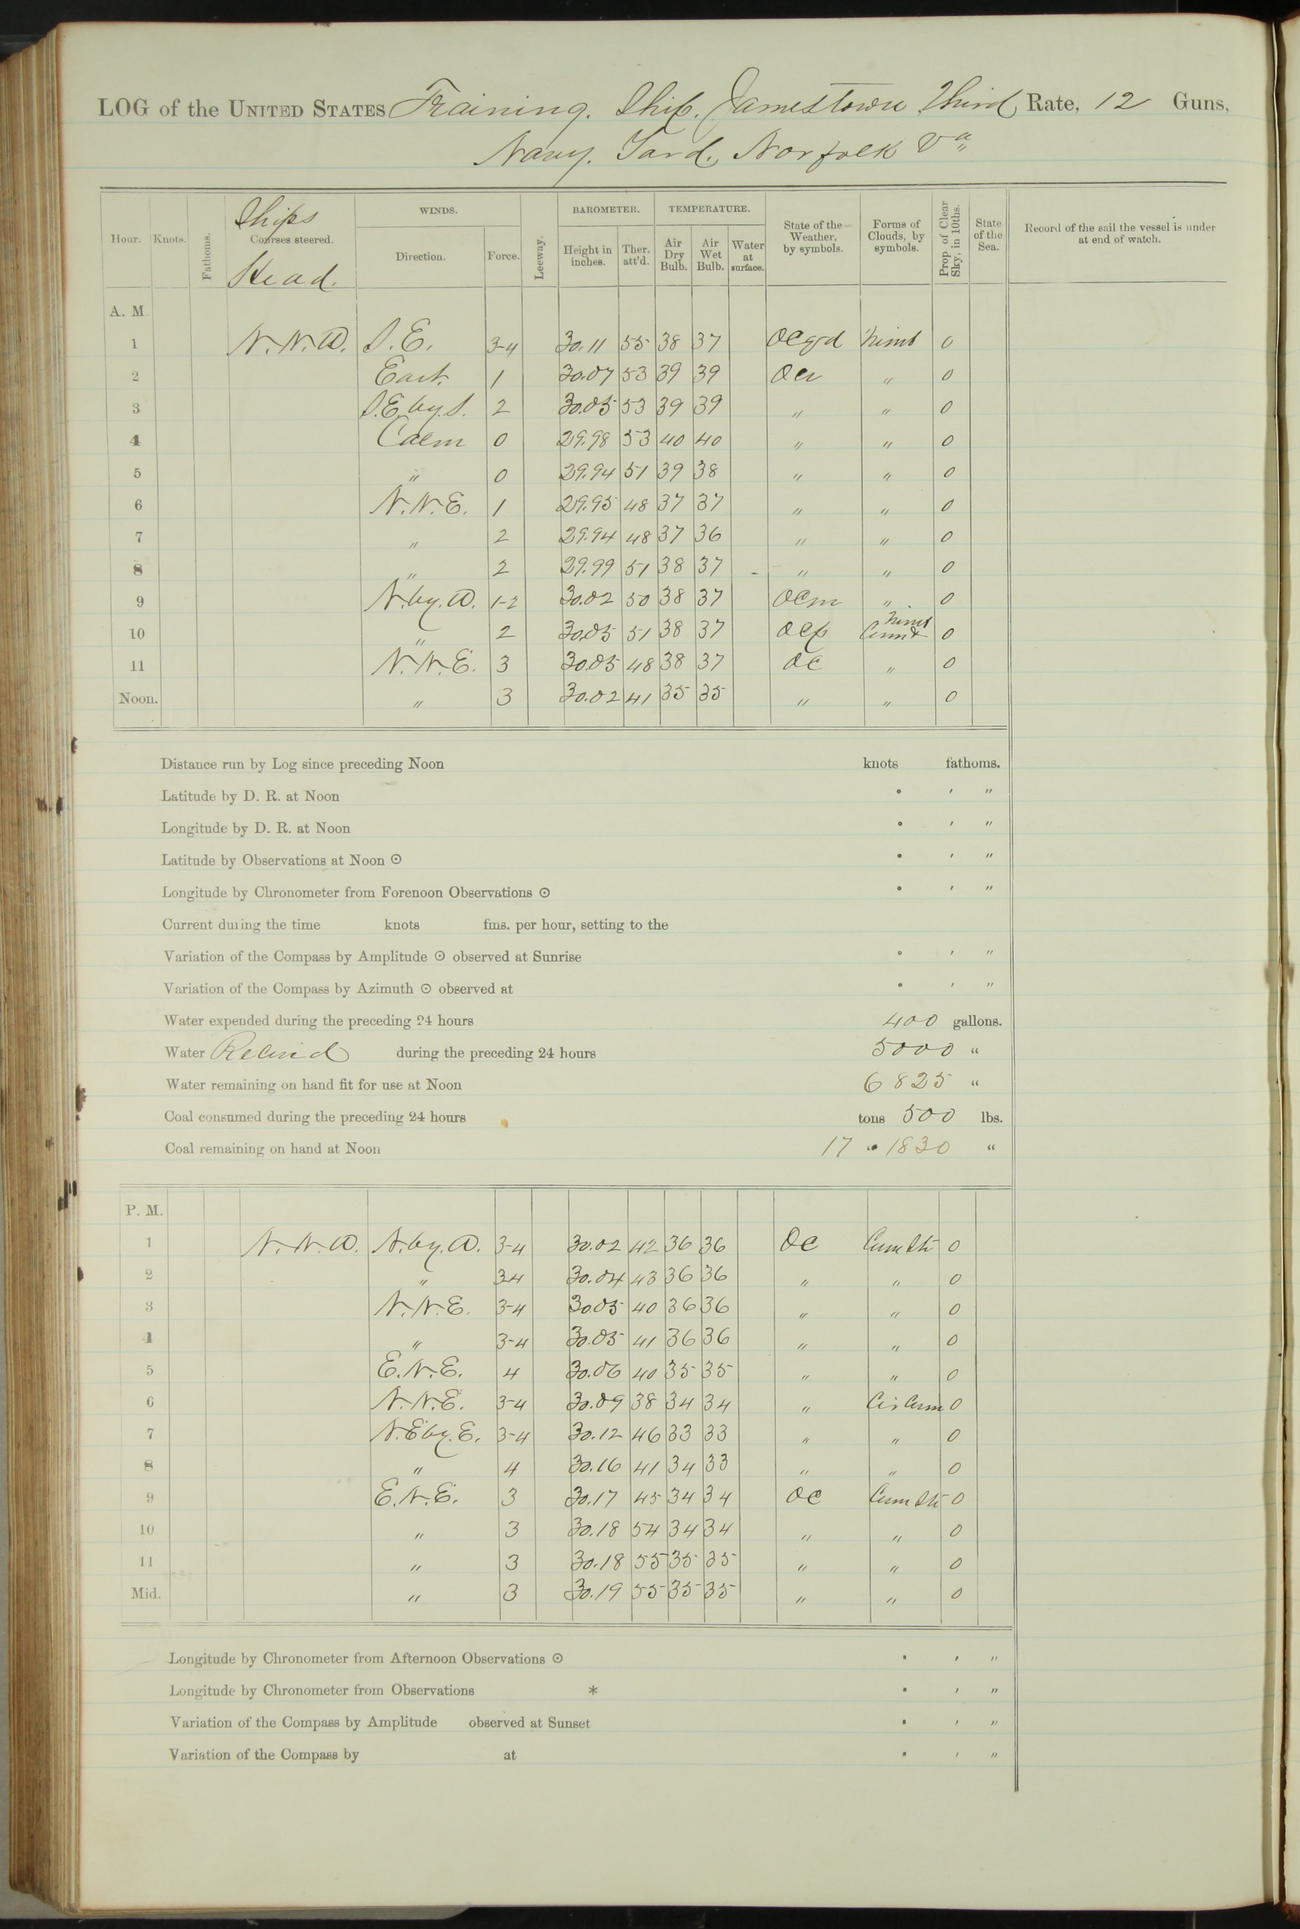 LOG of the UNITED STATES Training. Ship. Jamestown Third Rate, 12 Guns,
Navy. Yard. Norfolk Va
Hour. Knots. Fathoms. Ships Courses steered. Head. WINDS. Direction. Force. Leeway. BAROMETER. Height in inches. Ther. att'd. TEMPERATURE. Air Dry Bulb. Air Wet Bulb. Water at surface. State of the Weather, by symbols. Forms of Clouds, by symbols. Prop. of Clear Sky, in 10ths. State of the Sea. Record of the sail the vessel is under at end of watch.
A. M.
1 N.N.W. S.E. 3-4 30.11 55 38 37 ocgd Nimb 0
2 East. 1 30.07 53 39 39 ocr " 0
3 S.E. by S. 2 30.05 53 39 39 " " 0
4 Calm 0 29.98 53 40 40 " " 0
5 " 0 29.94 51 39 38 " " 0
6 N.N.E. 1 29.95 48 37 37 " " 0
7 " 2 29.94 48 37 36 " " 0
8 " 2 29.99 51 38 37 " " 0
9 N. by. W. 1-2 30.02 50 38 37 ocm " 0
10 " 2 30.05 51 38 37 ocp Nimb 0
11 N.N.E. 3 30.05 48 38 37 oc " 0
Noon. " 3 30.02 41 35 35 " " 0
Distance run by Log since preceding Noon knots fathoms.
Latitude by D. R. at Noon ° ' "
Longitude by D. R. at Noon ° ' "
Latitude by Observations at Noon ⊙ ° ' "
Longitude by Chronometer from Forenoon Observations ⊙ ° ' "
Current during the time knots fms. per hour, setting to the
Variation of the Compass by Amplitude ⊙ observed at Sunrise ° ' "
Variation of the Compass by Azimuth ⊙ observed at ° ' "
Water expended during the preceding 24 hours 400 gallons.
Water Recvid during the preceding 24 hours 5000 "
Water remaining on hand fit for use at Noon 6825 "
Coal consumed during the preceding 24 hours tons 500 lbs.
Coal remaining on hand at Noon 17 " 1830 "
P. M.
1 N.N.W. N. by. W. 3-4 30.02 42 36 36 oc Cum Str 0
2 " 3-4 30.04 43 36 36 " " 0
3 N.N.E. 3-4 30.05 40 36 36 " " 0
4 " 3-4 30.05 41 36 36 " " 0
5 E.N.E. 4 30.06 40 35 35 " " 0
6 N.N.E. 3-4 30.09 38 34 34 " Cir Cum 0
7 N.E. by. E. 3-4 30.12 46 33 33 " " 0
8 " 4 30.16 41 34 33 " " 0
9 E.N.E. 3 30.17 45 34 34 oc Cum Str 0
10 " 3 30.18 54 34 34 " " 0
11 " 3 30.18 55 35 35 " " 0
Mid. " 3 30.19 55 35 35 " " 0
Longitude by Chronometer from Afternoon Observations ⊙ ° ' "
Longitude by Chronometer from Observations * ° ' "
Variation of the Compass by Amplitude observed at Sunset ° ' "
Variation of the Compass by at ° ' "